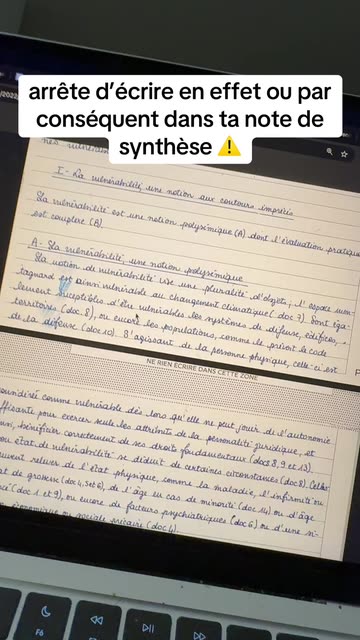 /2022/
arrête d'écrire en effet ou par
conséquent dans ta note de
synthèse ⚠️
I - La vulnérabilité, une notion aux contours imprécis
La vulnérabilité est une notion polysémique (A) dont l'évaluation pratique
est complexe (A).
A - La vulnérabilité, une notion polysémique
La notion de vulnérabilité vise une pluralité d'objets ; l'espace mon-
tagnard est ainsi vulnérable au changement climatique (doc 7). Sont éga-
lement susceptibles d'être vulnérables les systèmes de défense, édifices,
territoires (doc. 8), ou encore les populations, comme le prévoit le code
de la défense (doc 10). S'agissant de la personne physique, celle-ci est
NE RIEN ECRIRE DANS CETTE ZONE
considérée comme vulnérable dès lors qu'elle ne peut jouir de l'autonomie
suffisante pour exercer seule les attributs de la personnalité juridique, et
bénéficier correctement de ses droits fondamentaux (docs 8, 9 et 13).
état de vulnérabilité se déduit de certaines circonstances (doc 8). Celles-
relever de l'état physique, comme la maladie, l'infirmité ou
de grossesse (doc 4, 5 et 6), de l'âge en cas de minorité (doc 14) ou d'âge
(doc 1 et 9), ou encore de facteurs psychiatriques (doc 6) ou d'une si-
économique ou sociale précaire (doc 4).
F6
F7
F8